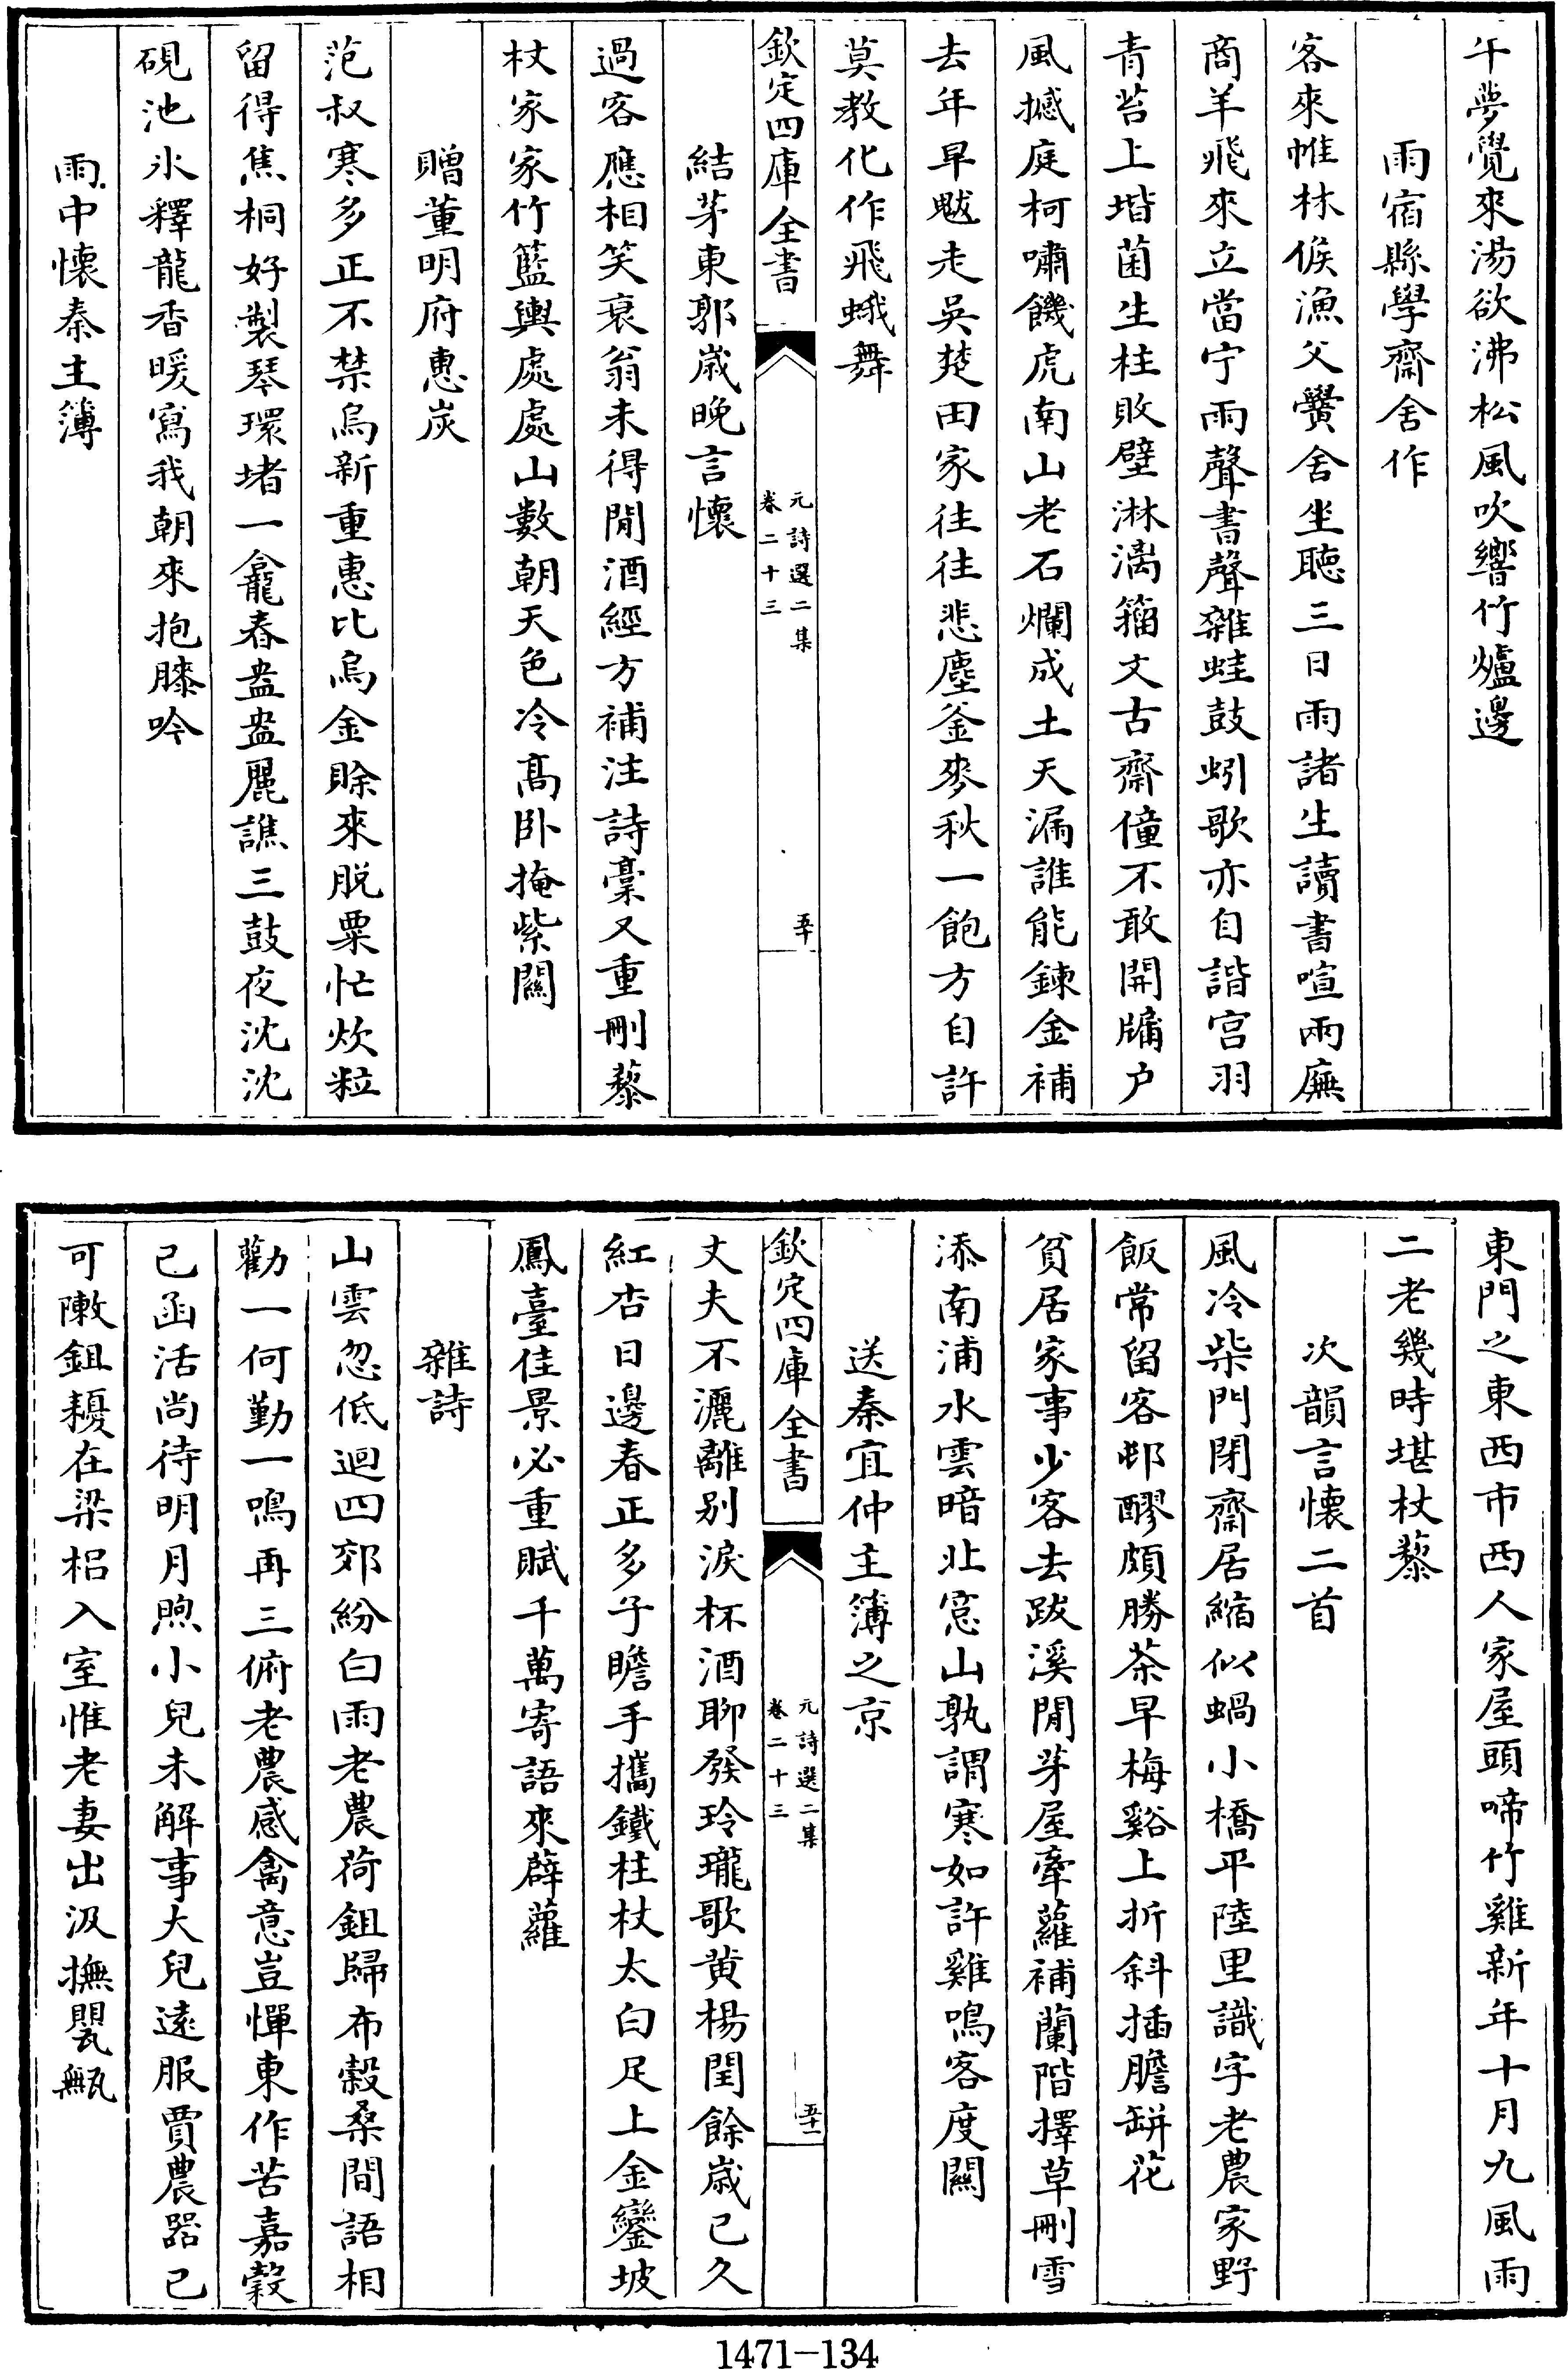 午夢覺來湯欲沸松風吹響竹爐邊
雨宿縣學齋舍作
客來帷林候漁父黌舍坐聽三日雨諸生讀書喧兩廡
商羊飛來立當宁雨聲書聲雜蛙鼓蚓歌亦自諧宫羽
青苔上堦菌生柱敗壁淋漓籀文古齋僮不敢開牖户
風撼庭柯嘯饑虎南山老石爛成土天漏誰能鍊金補
去年旱魃走吳楚田家往往悲塵釜麥秋一飽方自許
莫教化作飛蛾舞
欽定四庫全書
元詩選二集
卷二十三
五十
結茅東郭歲晚言懷
過客應相笑衰翁未得閒酒經方補注詩藁又重刪藜
杖家家竹籃輿處處山數朝天色冷高卧掩紫關
贈董明府惠炭
范叔寒多正不禁烏新重惠比烏金賒來脱粟忙炊粒
留得焦桐好製琴環堵一龕春盎盎麗譙三鼓夜沈沈
硯池氷釋龍香暖寫我朝來抱膝吟
雨中懷秦主簿
東門之東西市西人家屋頭啼竹雞新年十月九風雨
二老幾時堪杖藜
次韻言懷二首
風冷柴門閉齋居縮似蝸小橋平陸里識字老農家野
飯常留客邨醪頗勝茶早梅谿上折斜插膽缾花
貧居家事少客去跋溪閒芽屋牽蘿補蘭階擇草刪雪
添南浦水雲暗北窓山孰謂寒如許雞鳴客度關
送秦宜仲主簿之京
欽定四庫全書
元詩選二集
卷二十三
五十一
丈夫不灑離别淚杯酒聊發玲瓏歌黄楊閏餘歲已久
紅杏日邊春正多子瞻手攜鐵柱杖太白足上金鑾坡
鳳臺佳景必重賦千萬寄語來薜蘿
雜詩
山雲忽低迴四郊紛白雨老農荷鉏歸布穀桑間語相
勸一何勤一鳴再三俯老農感禽意豈憚東作苦嘉穀
已函活尚待明月煦小兒未解事大兒遠服賈農器已
可歕鉏耰在梁梠入室惟老妻出汲撫甖甒
1471-134